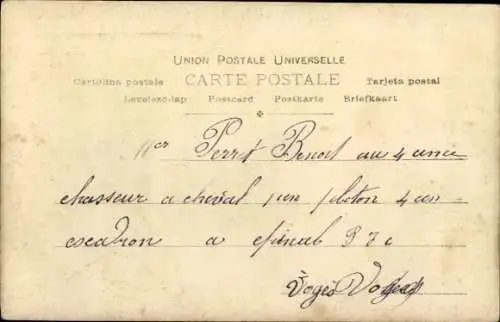 UNION POSTALE UNIVERSELLE
Cartolina postale CARTE POSTALE Tarjeta postal
Levelező-lap Postcard Postkarte Briefkaart
Mer Perrot Benoit au 4 eme
chasseur a cheval 1 er ploton 4 em
escadron a epinal
Voges Vosges